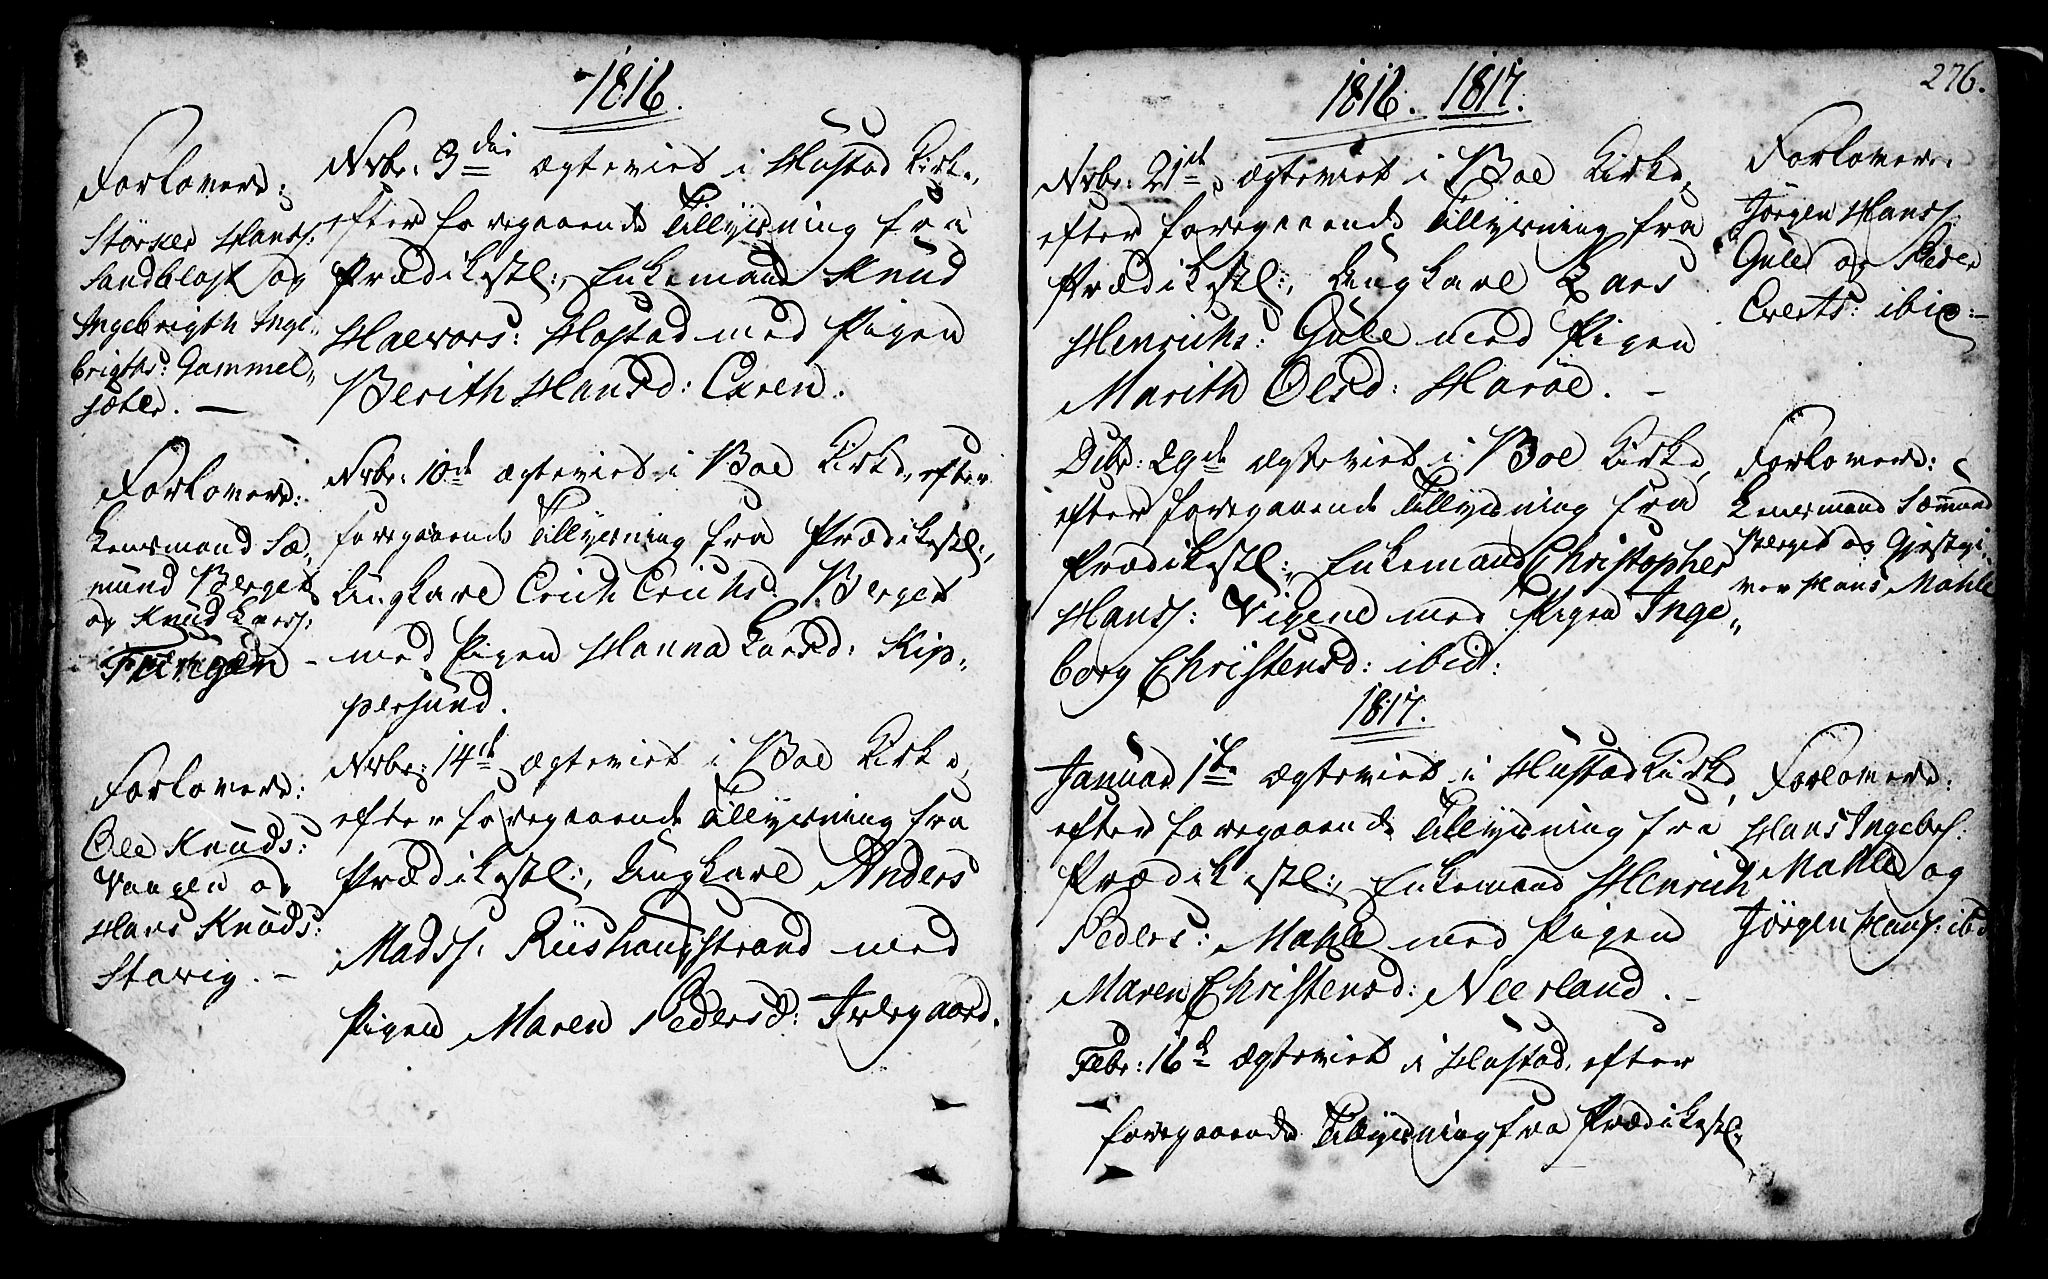 1816.
Forlovere:
Størker Hanss:
Sandblost og
Ingebrigth Inge-
brigths: Gammel-
sæter. —
Nvbr: 3die ægteviet i Hustad Kirke,
efter foregaaende Tillysning fra
Prædikestl:, Enkemand Knud
Halvors: Hostad med Pigen
Berith Hansd: Exren.
Forlovere:
Lensmand Sæ-
mund Berget
og Knud Larss:
Nvbr: 10de ægteviet i Boe Kirke, efter
foregaaende Tillysning fra Prædikestl:,
Ungkarl Erich Erichs: Berget
med Pigen Hanna Larsd: Kip-
persund.
Forlovere:
Ole Knuds:
Vangen og
Hans Knuds:
Stavig. —
Nvbr: 14de ægteviet i Boe Kirke,
efter foregaaende Tillysning fra
Prædikestl:, Ungkarl Anders
Madss: Riishaugstrand med
Pigen Maren Pedersd: Indregaard.
276.
1816. 1817.
Nvbr: 21de ægteviet i Boe Kirke,
efter foregaaende Tillysning fra
Prædikestl:, Ungkarl Lars
Henrichs: Gule med Pigen
Marith Olsd: Harøe. —
Forlovere:
Jørgen Hanss:
Gule og Peder
Everts: ibid: —
Dcbr: 29de ægteviet i Boe Kirke,
efter foregaaende Tillysning fra
Prædikestl:, Enkemand Christopher
Hanss: Vigene med Pigen Inge-
borg Christensd: ibid:
Forlovere:
Lensmand Sæmund
Berget og Gjæstgi-
ver Hans Mahle
1817.
Januar 1te ægteviet i Hustad Kirke,
efter foregaaende Tillysning fra
Prædikestl:, Enkemand Henrich
Peders: Mahle med Pigen
Maren Christensd: Neerland. —
Forlovere:
Hans Ingebr:
Mahle og
Jørgen Hanss: ibd
Febr: 16de ægteviet i Hustad, efter
foregaaende Tillysning fra Prædikestl:,